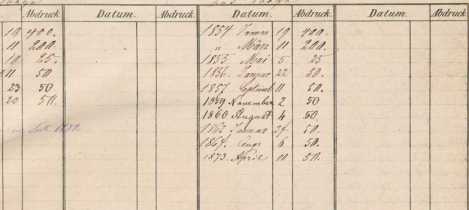 Abdruck. Datum. Abdruck. Datum. Abdruck. Datum. Abdruck
19 400. 1854 Januar 19 400.
11 200. " März 11 200
19 25. 1855 Mai 5 25
11 50 1856 Januar 22 50.
23 50 1857 Septemb 11 50.
20 50. 1859 November 2 50
1860 August 4 50.
Januar 50.
Augu 6 50.
1873 April 10 50.